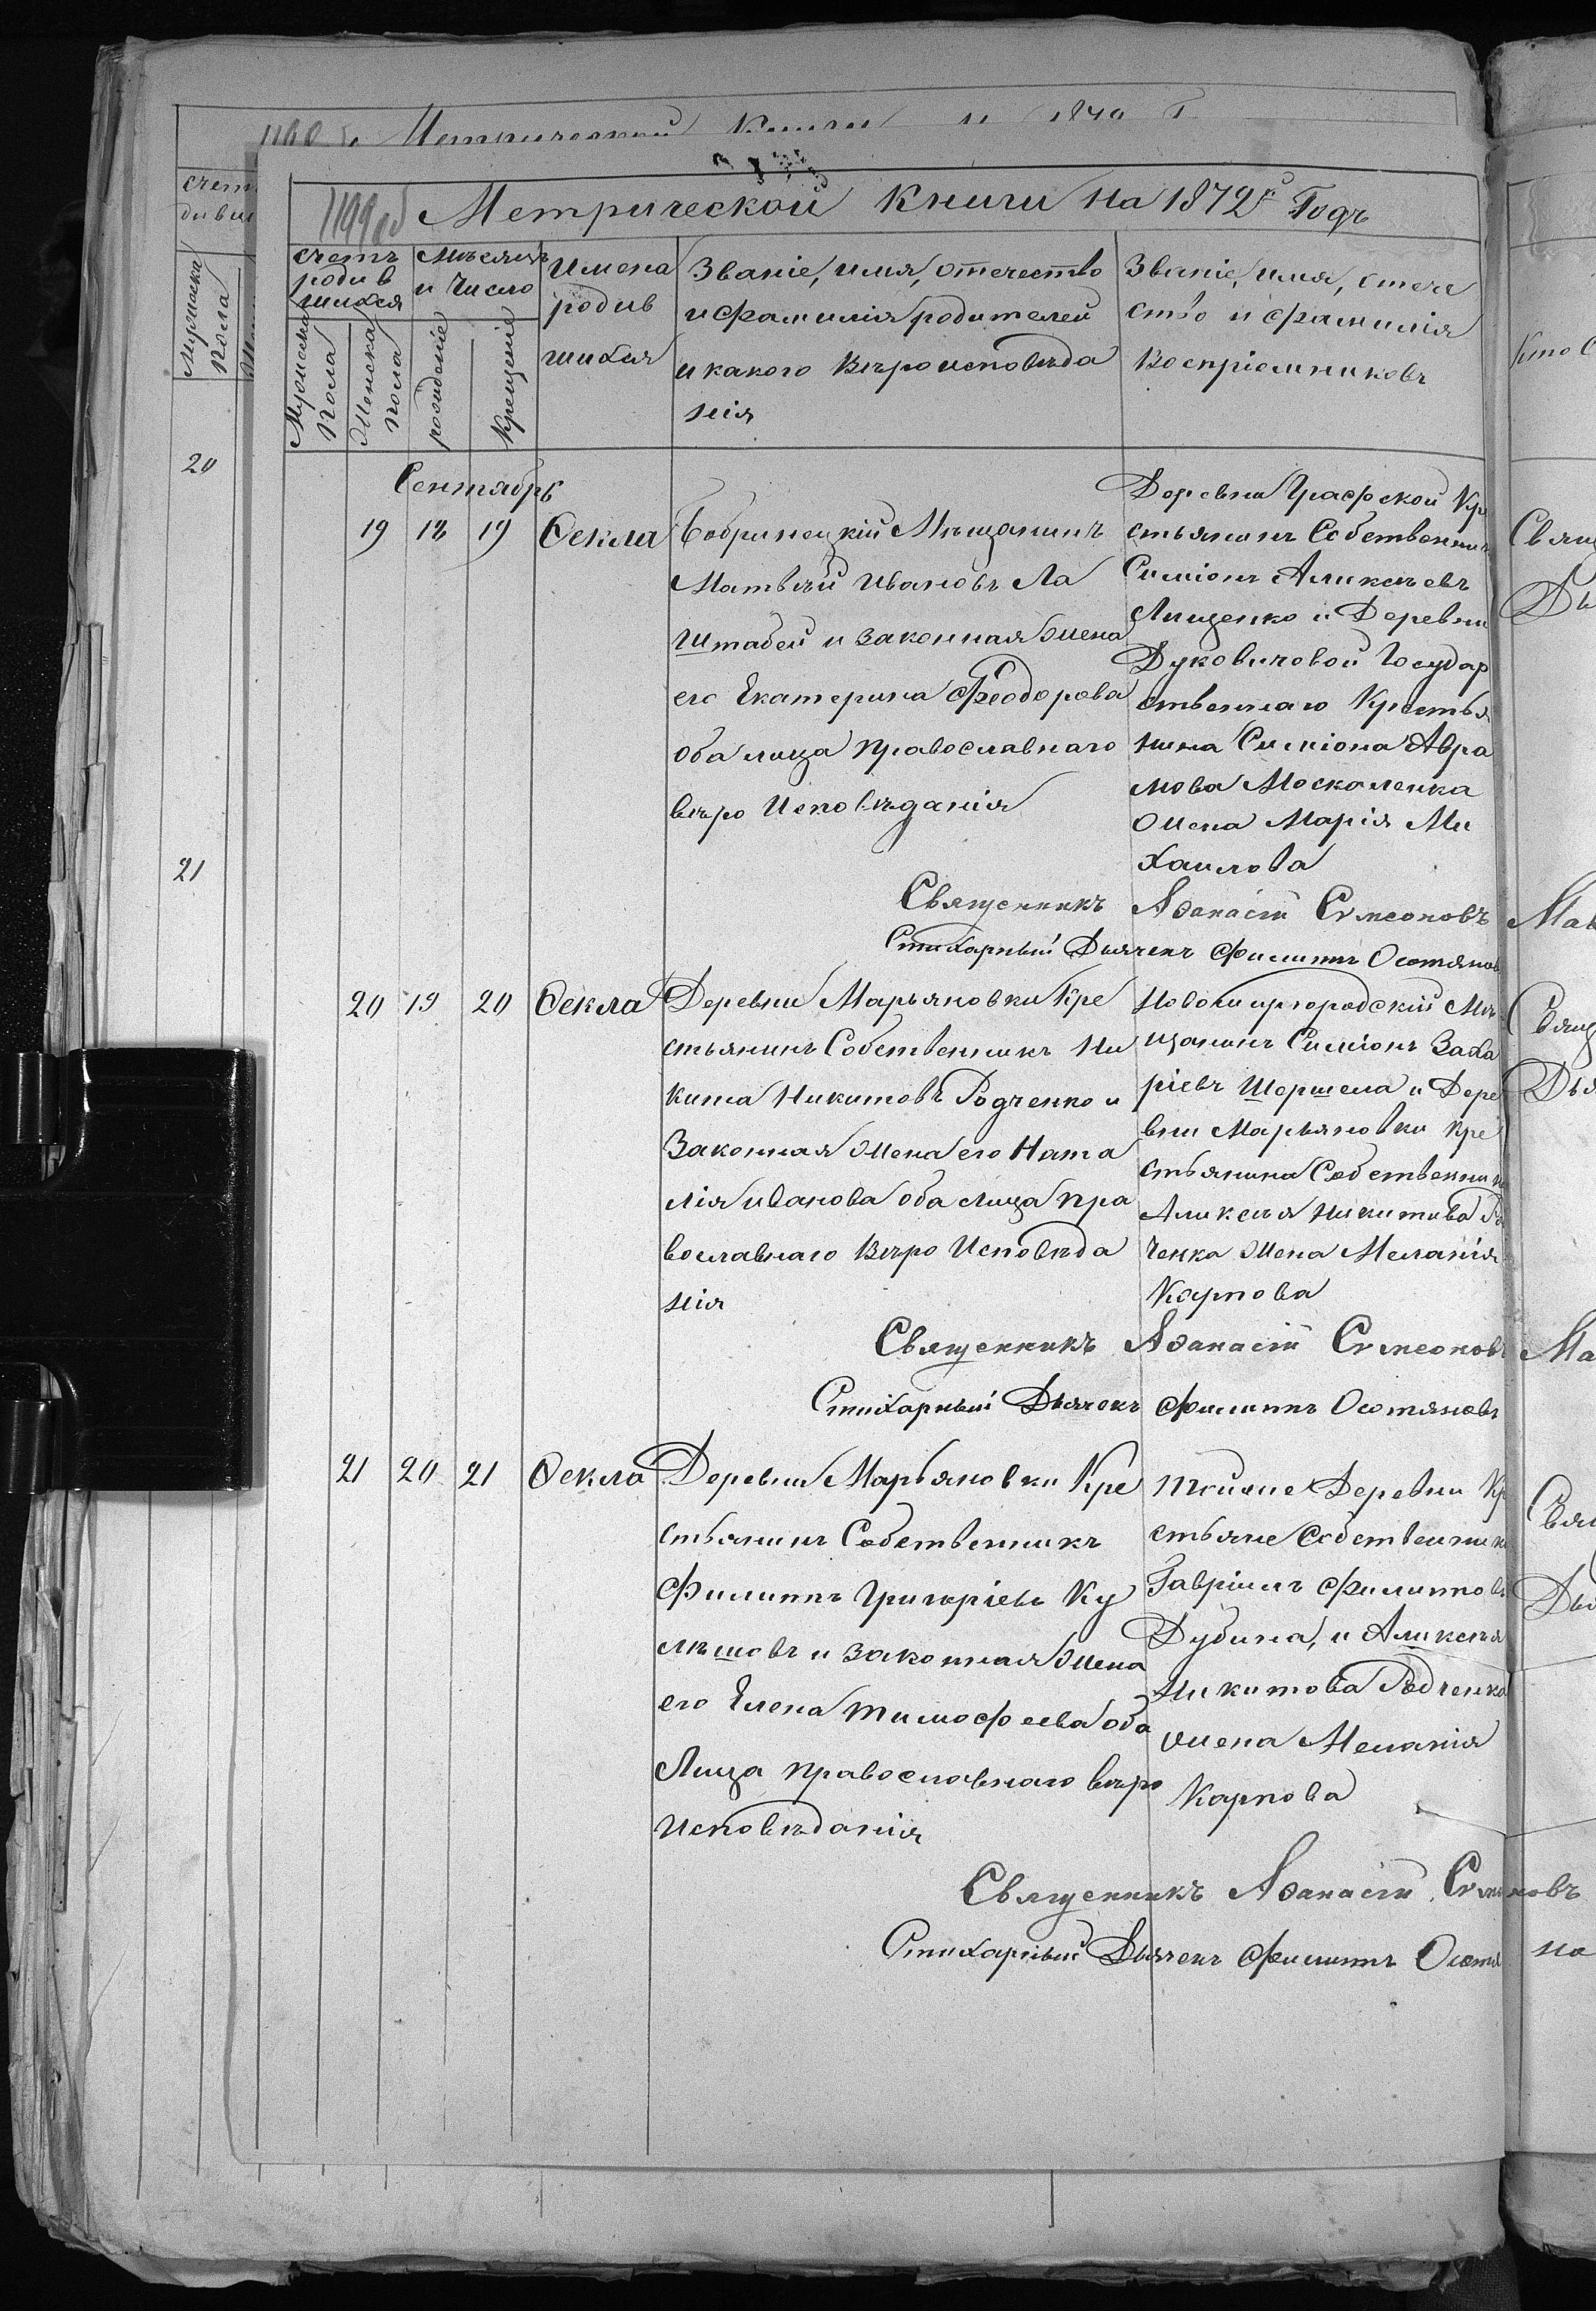 1199 об Метрической Книги на 1872й Годъ
счетъ родив шихся
Мужеска Пола
Женска пола
Мѣсяцъ и Число
рожденіе
Крещеніе
Имена родив шихся
Званіе, имя, отечество
и фамилія родителей
и какого Вѣроисповѣда
нія
Званіе, имя, отече
ство и фамилія
Воспріемниковъ
Сентябрь
19 18 19 Ѳекла
Бобринецкій Мѣщанинъ
Матвѣй Ивановъ Ла
Штабей и законная жена
его Екатерина Феодорова
оба лица Православнаго
вѣро Исповѣданія
Деревни Графской Кре
стьянинъ Собственникъ
Симіонъ Аликсѣевъ
Лищенко и Деревни
Дуковичовой Государ
ственнаго Крестья
нина Симіона Авра
мова Москаленка
жена Марія Ми
хаилова
Священникъ Аѳанасій Симеоновъ
Стихарный Дьячекъ Филиппъ Осотяновъ
20 19 20 Ѳекла
Деревни Марьяновки Кре
стьянинъ Собственникъ Ни
кита Никитовъ Родченко и
Законная жена его Ната
лія иванова оба лица пра
вославнаго Вѣро Исповѣда
нія
Новомиргородскій Мѣ
щанинъ Симіонъ Заха
ріевъ Шершела и Дере
вни Марьяновки Кре
стьянина Собственника
Аликсѣя Никитова Ро
ченка жена Меланія
Карпова
Священникъ Аѳанасій Симеоновъ
Стихарный Дьячекъ Филиппъ Осотяновъ
21 20 21 Ѳекла
Деревни Марьяновки Кре
стьянинъ Собственникъ
Филиппъ Григоріевъ Ку
лѣшовъ и законная жена
его Елена Тимофеева оба
Лица православнаго вѣро
Исповѣданія
Тойже Деревни Кр
стьяне Собственник
Гавріилъ Филиппов
Дубина, и Аликсѣя
Никитова Родченка
жена Меланія
Карпова
Священникъ Аѳанасій Симеоновъ
Стихарный Дьячекъ Филиппъ Осотя